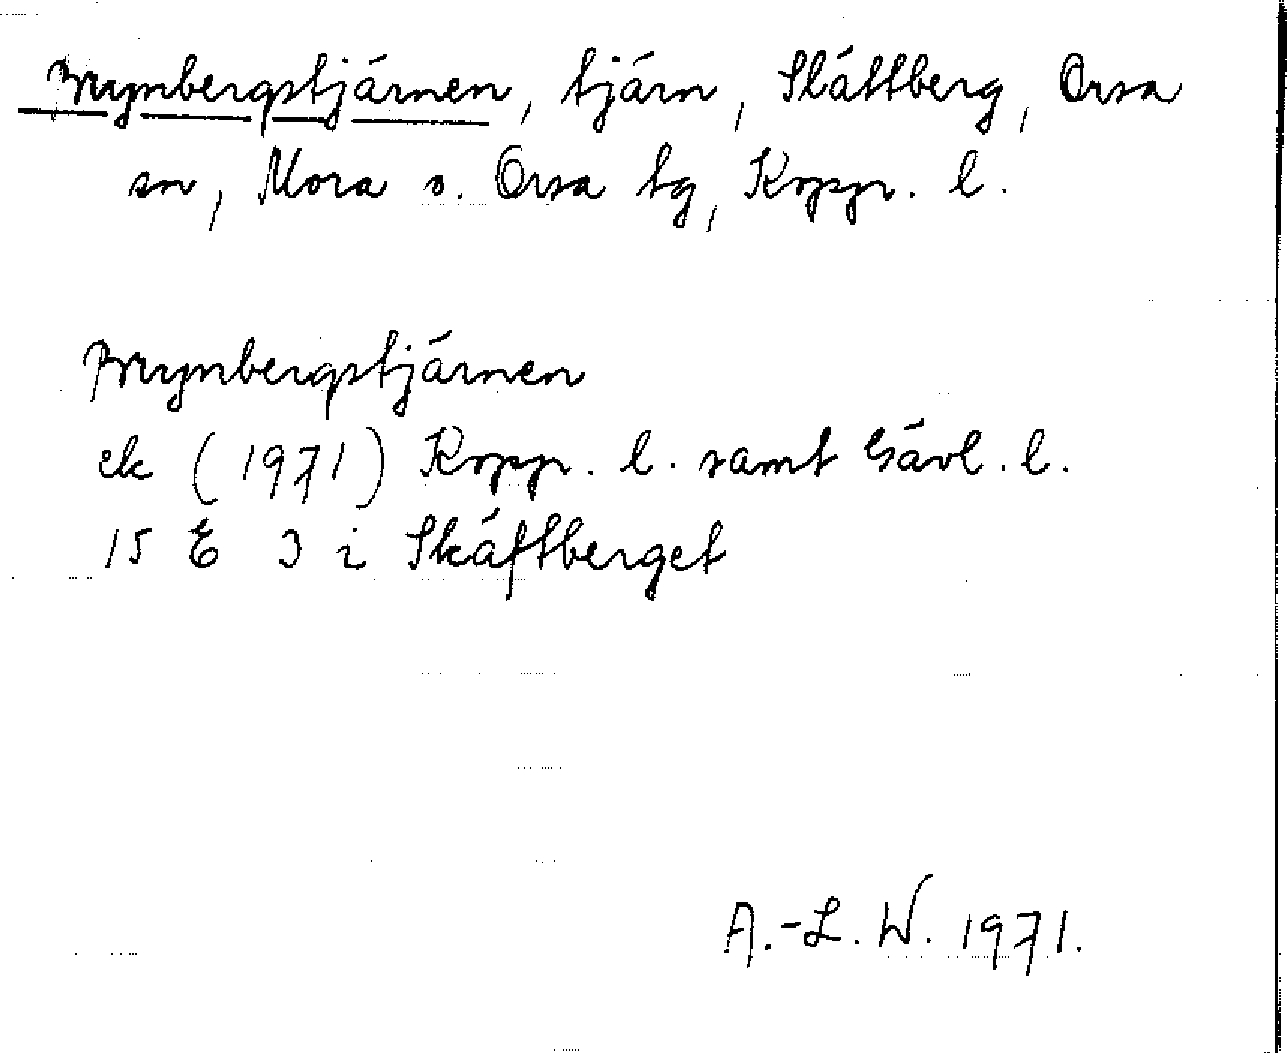 Brynbergstjärnen, tjärn, Slättberg, Orsa
sn, Mora o. Orsa tg, Kopp. l.
Brynbergstjärnen
ek (1971) Kopp. l. samt Gävl. l.
15 E 3 i Skäftberget
A.-L. W. 1971.